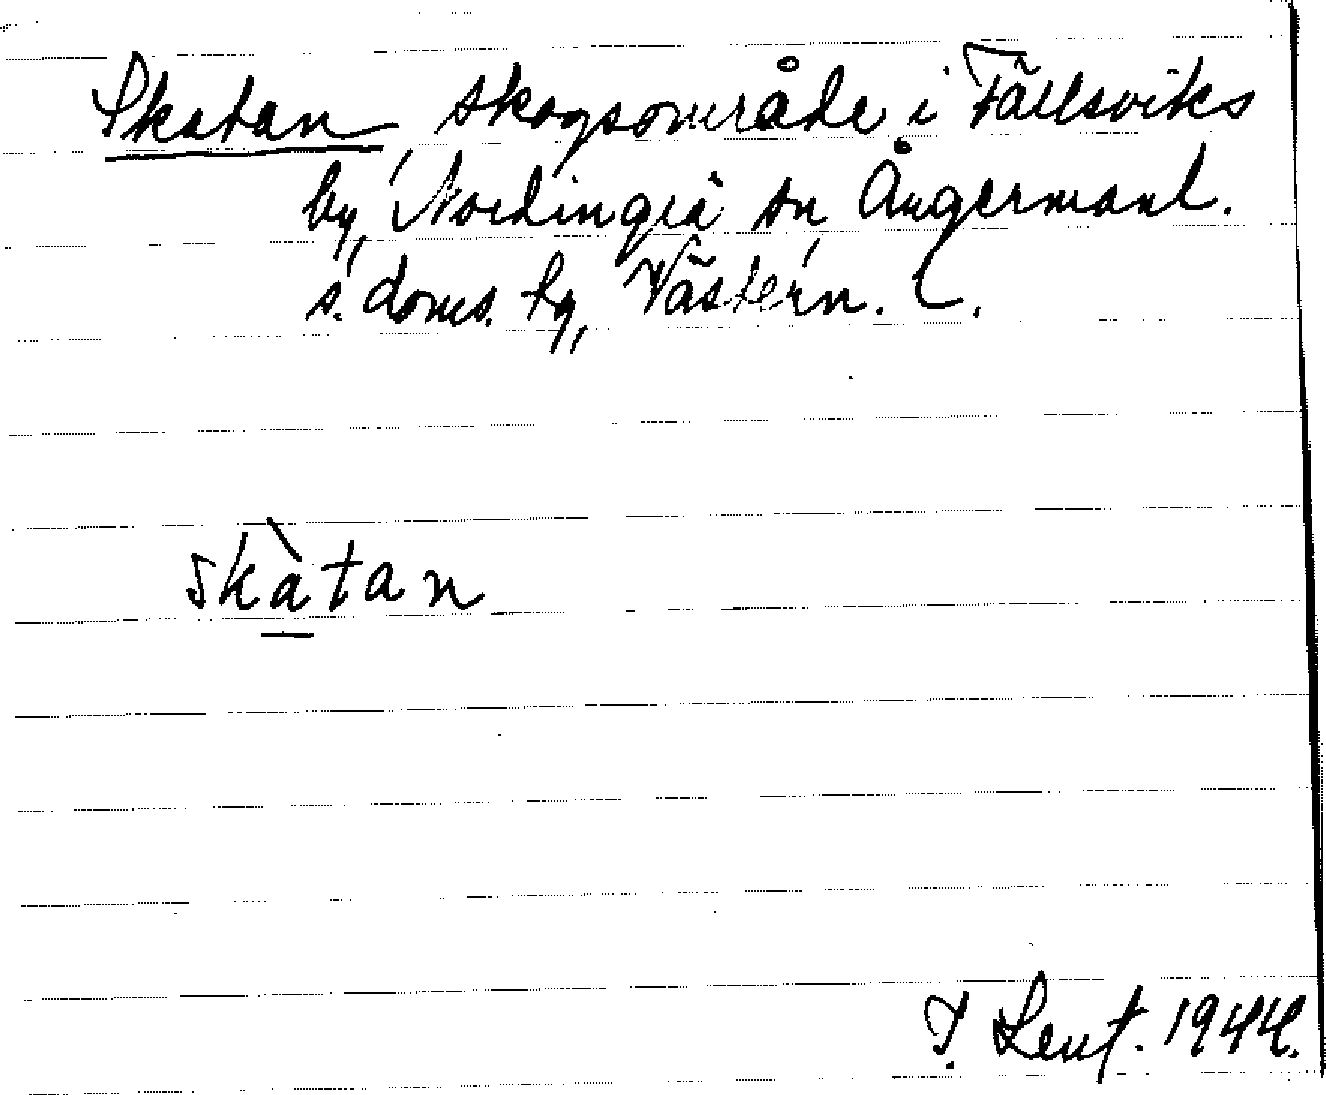 Skatan, skogsområde i Fällsviks
by, Nordingrå sn Ångermanl.
s. doms. hg, Västern. L.
skàtan
1944.